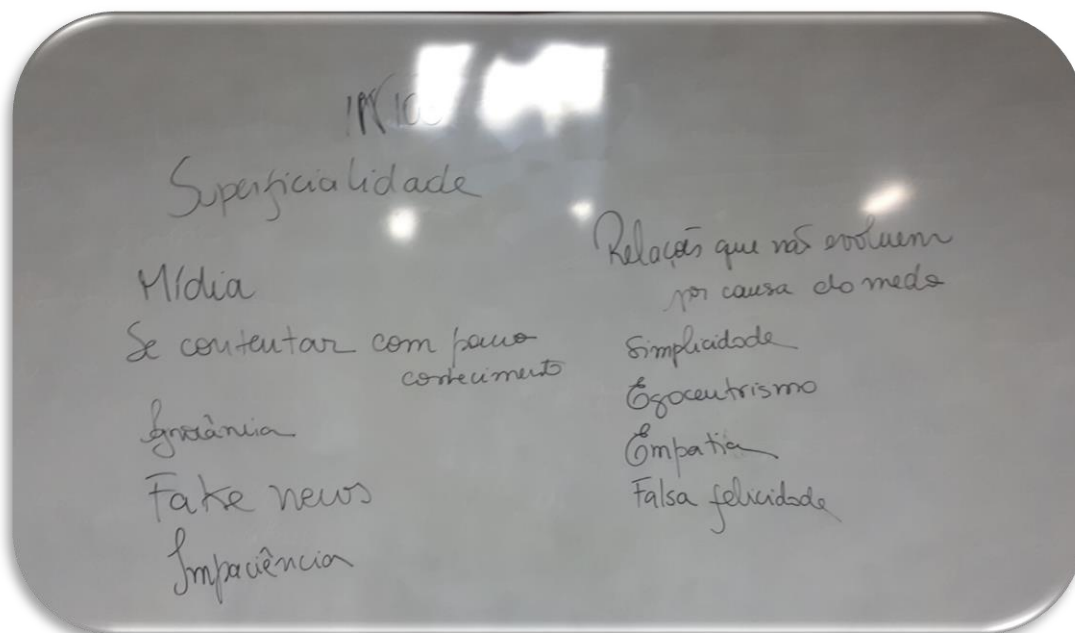 Superficialidade
Mídia
Se contentar com pouco
conhecimento
Ignorância
Fake news
Impaciência
Relações que não evoluem
por causa do medo
Simplicidade
Egocentrismo
Empatia
Falsa felicidade